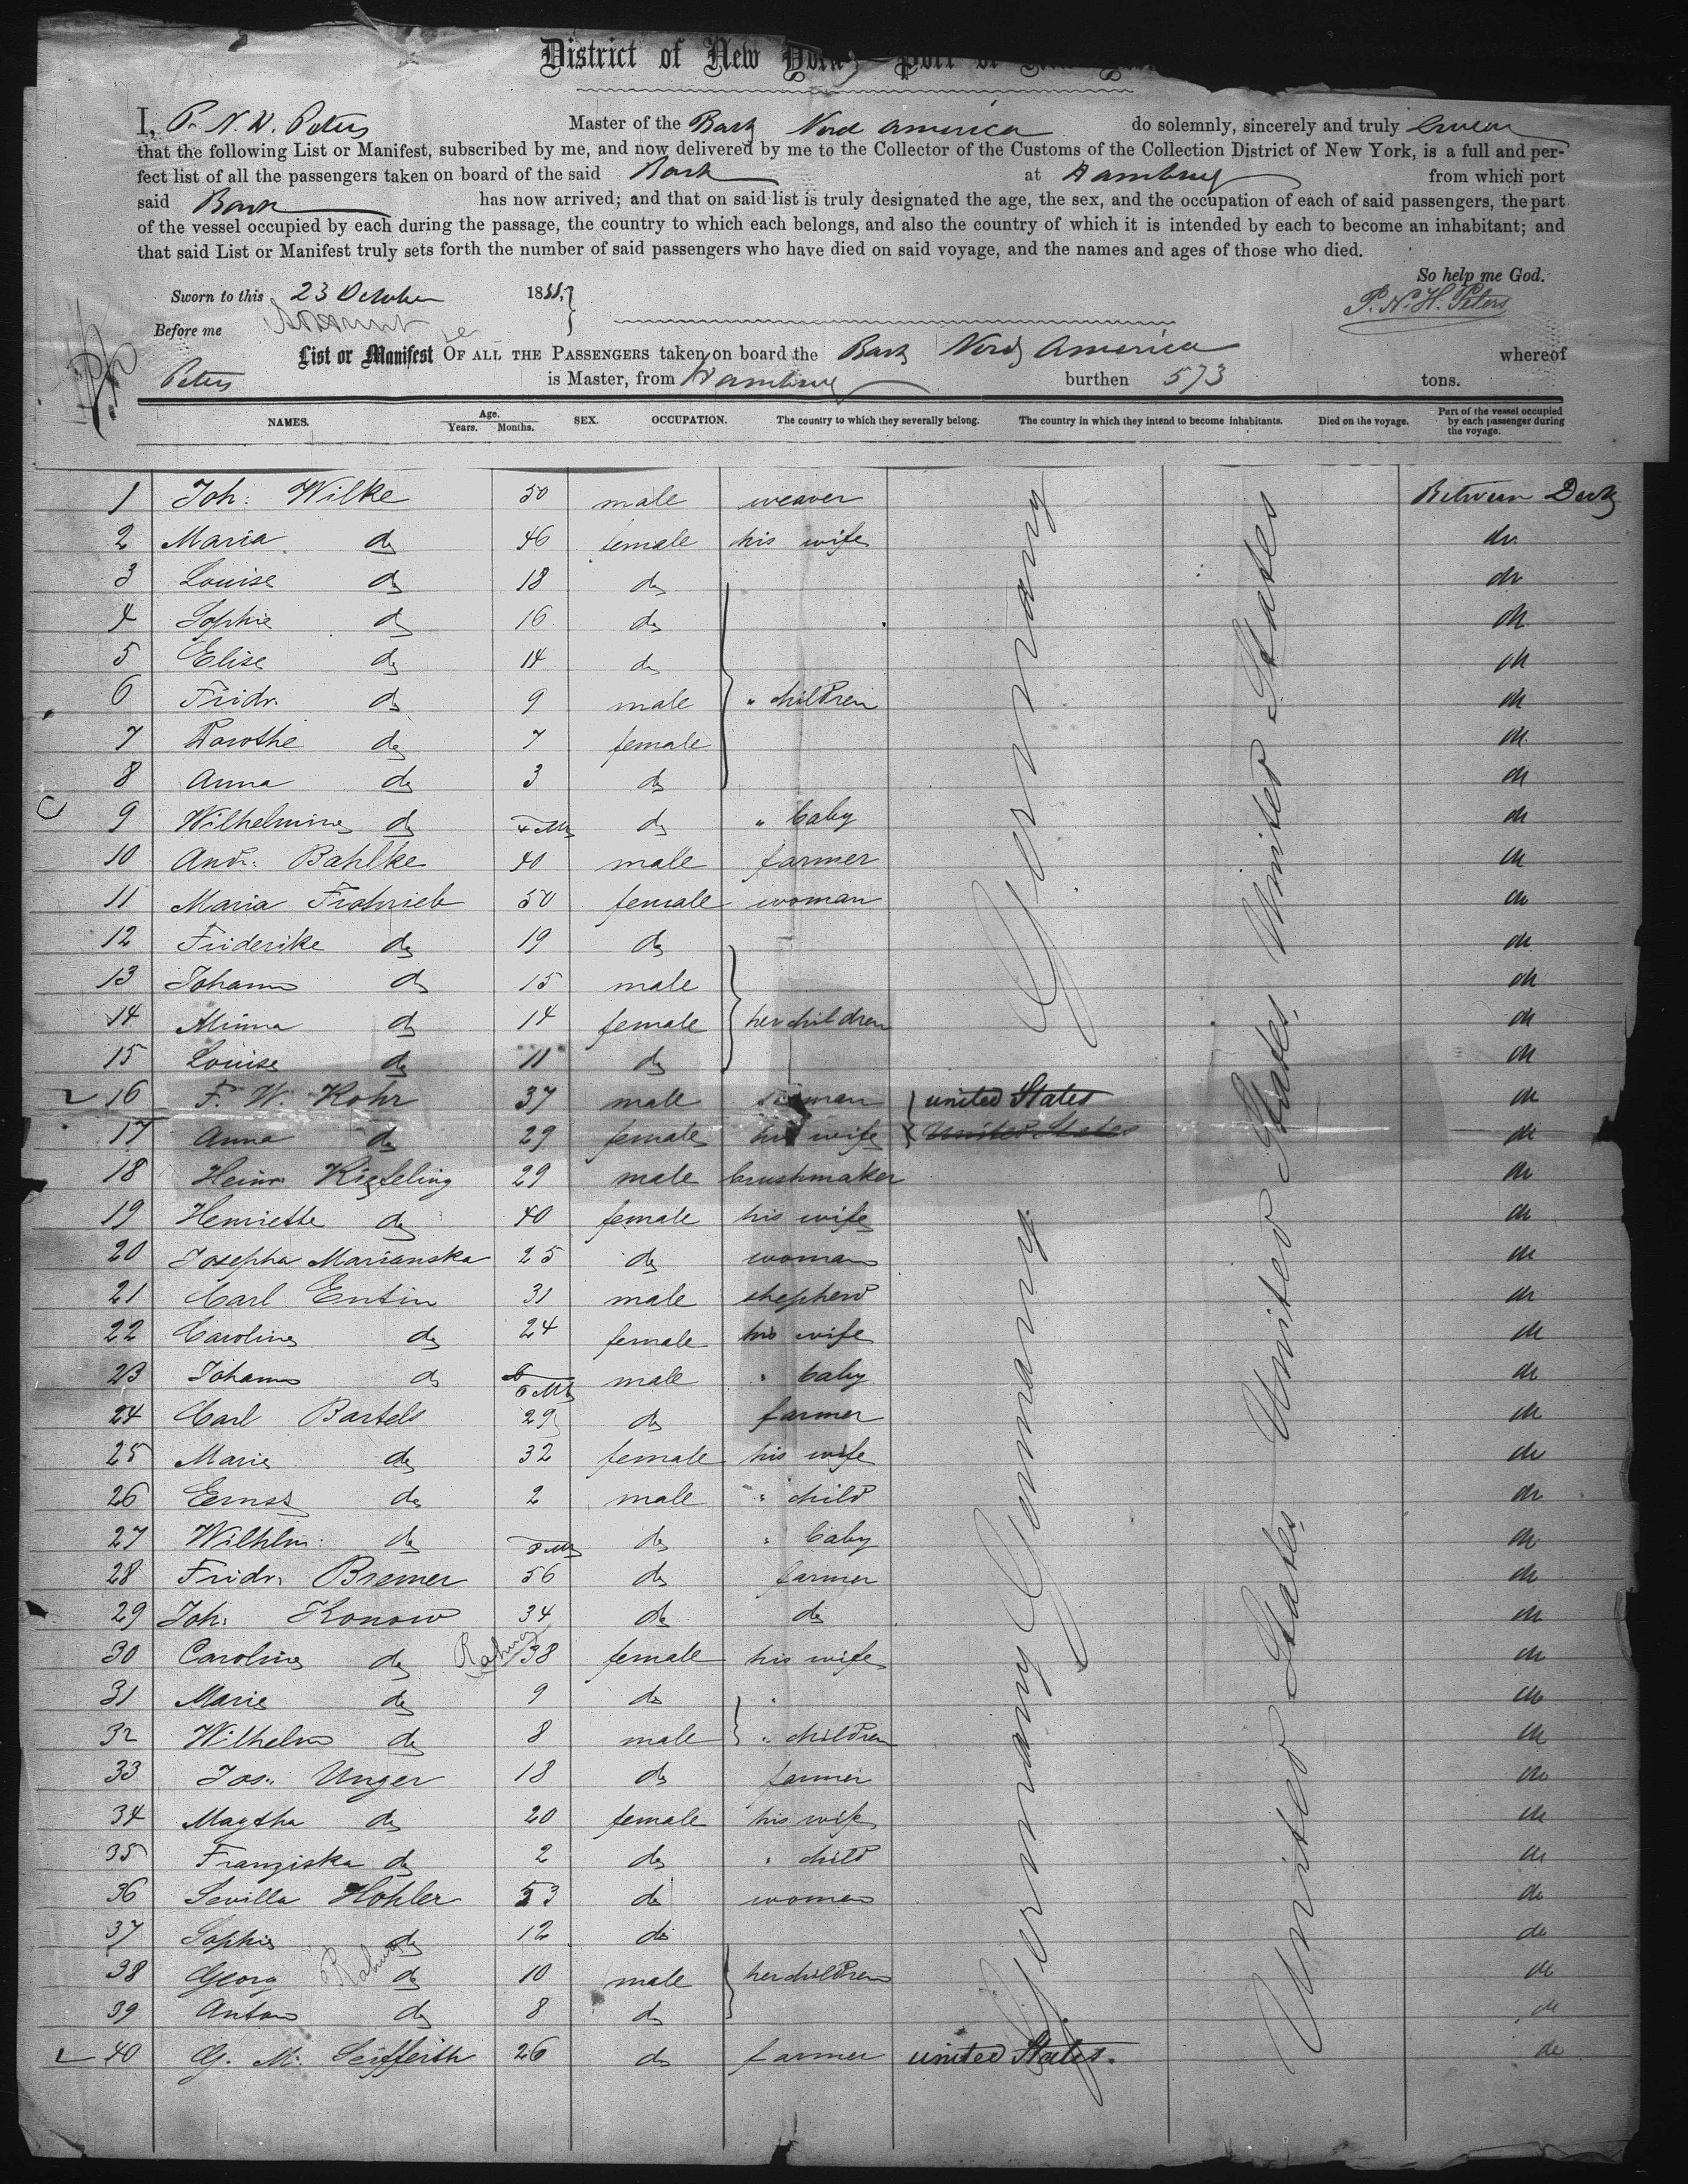 District of New York - Port of
I, P. N. H. Peters Master of the Bark Nord America do solemnly, sincerely and truly swear
that the following List or Manifest, subscribed by me, and now delivered by me to the Collector of the Customs of the Collection District of New York, is a full and per-
fect list of all the passengers taken on board of the said Bark at Hamburg from which port
said Bark has now arrived; and that on said list is truly designated the age, the sex, and the occupation of each of said passengers, the part
of the vessel occupied by each during the passage, the country to which each belongs, and also the country of which it is intended by each to become an inhabitant; and
that said List or Manifest truly sets forth the number of said passengers who have died on said voyage, and the names and ages of those who died.
So help me God.
Sworn to this 23 October 18 P. N. H. Peters
Before me
List or Manifest OF ALL THE PASSENGERS taken on board the Bark Nord America whereof
Peters is Master, from Hamburg burthen 573 tons.
NAMES. Age. Years. Months. SEX. OCCUPATION. The country to which they severally belong. The country in which they intend to become inhabitants. Died on the voyage. Part of the vessel occupied by each passenger during the voyage.
1 Joh: Wilke 50 male weaver Germany United States Between Deck
2 Maria do 46 female his wife do
3 Louise do 18 do do
4 Sophie do 16 do do
5 Elise do 14 do do
6 Fridr. do 9 male " children do
7 Dorothe do 7 female do
8 Anna do 3 do do
9 Wilhelmine do 4 Ms do " baby do
10 Andr: Bahlke 40 male farmer do
11 Maria 50 female woman do
12 Friderike do 19 do do
13 Johann do 15 male do
14 Minna do 14 female her children do
15 Louise do 11 do United States do
16 F. W. Kohr 37 male united States do
17 Anna do 29 female his wife United States do
18 Heinr. Kiesseling 29 male brushmaker do
19 Henriette do 40 female his wife Germany do
20 Josepha Marianska 25 do woman do
21 Carl Entin 31 male shepherd do
22 Caroline do 24 female his wife do
23 Johann do 6 Ms male " baby do
24 Carl Bartels 29 do farmer United States do
25 Marie do 32 female his wife do
26 Ernst do 2 male " child do
27 Wilhlm: do 8 Ms do " baby do
28 Fridr. Bremer 56 do farmer do
29 Joh: Konow 34 do do do
30 Caroline do 38 female his wife Germany do
31 Marie do 9 do " do
32 Wilhelm do 8 male " children do
33 Jos: Unger 18 do farmer do
34 Magtha do 20 female his wife United States do
35 Franziska do 2 do " child do
36 Sevilla Hohler 53 do woman do
37 Sophie do 12 do do
38 Georg do 10 male her children do
39 Anton do 8 do do
40 G. M. Seifferth 26 do farmer united States. do